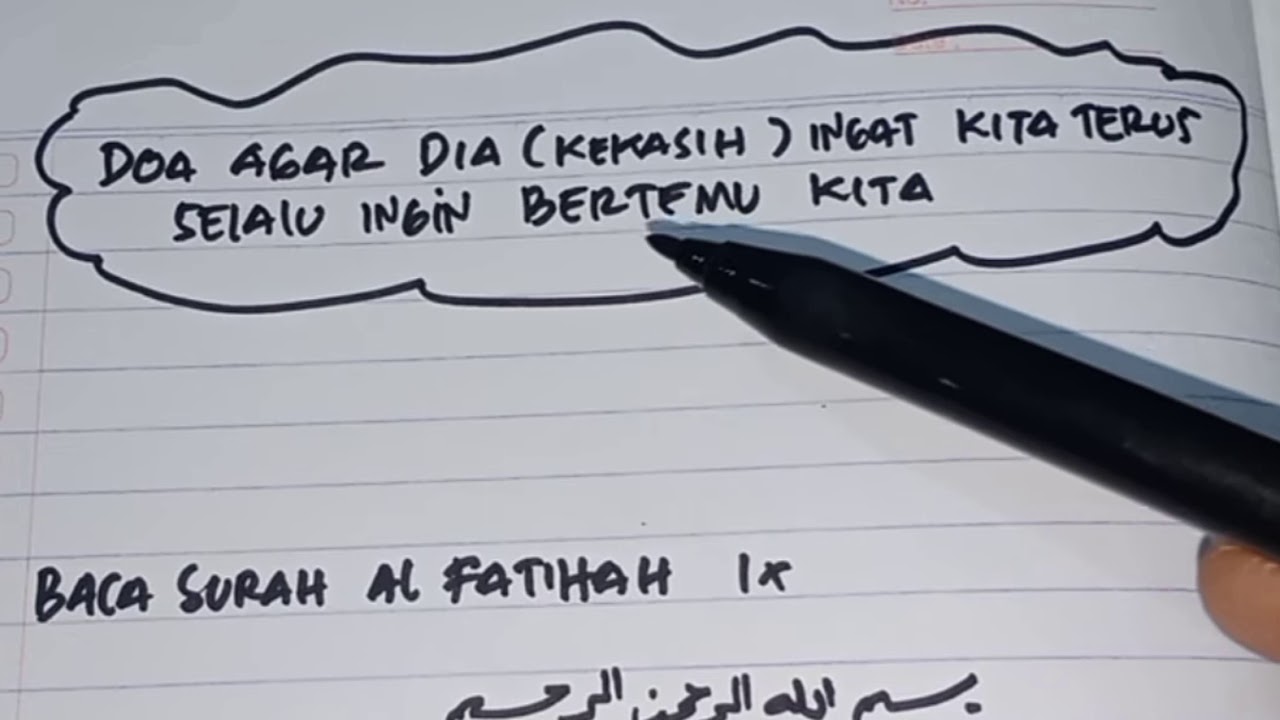 DOA AGAR DIA (KEKASIH) INGAT KITA TERUS
SELALU INGIN BERTEMU KITA
BACA SURAH AL FATIHAH 1x
بسم الله الرحمن الرحيم